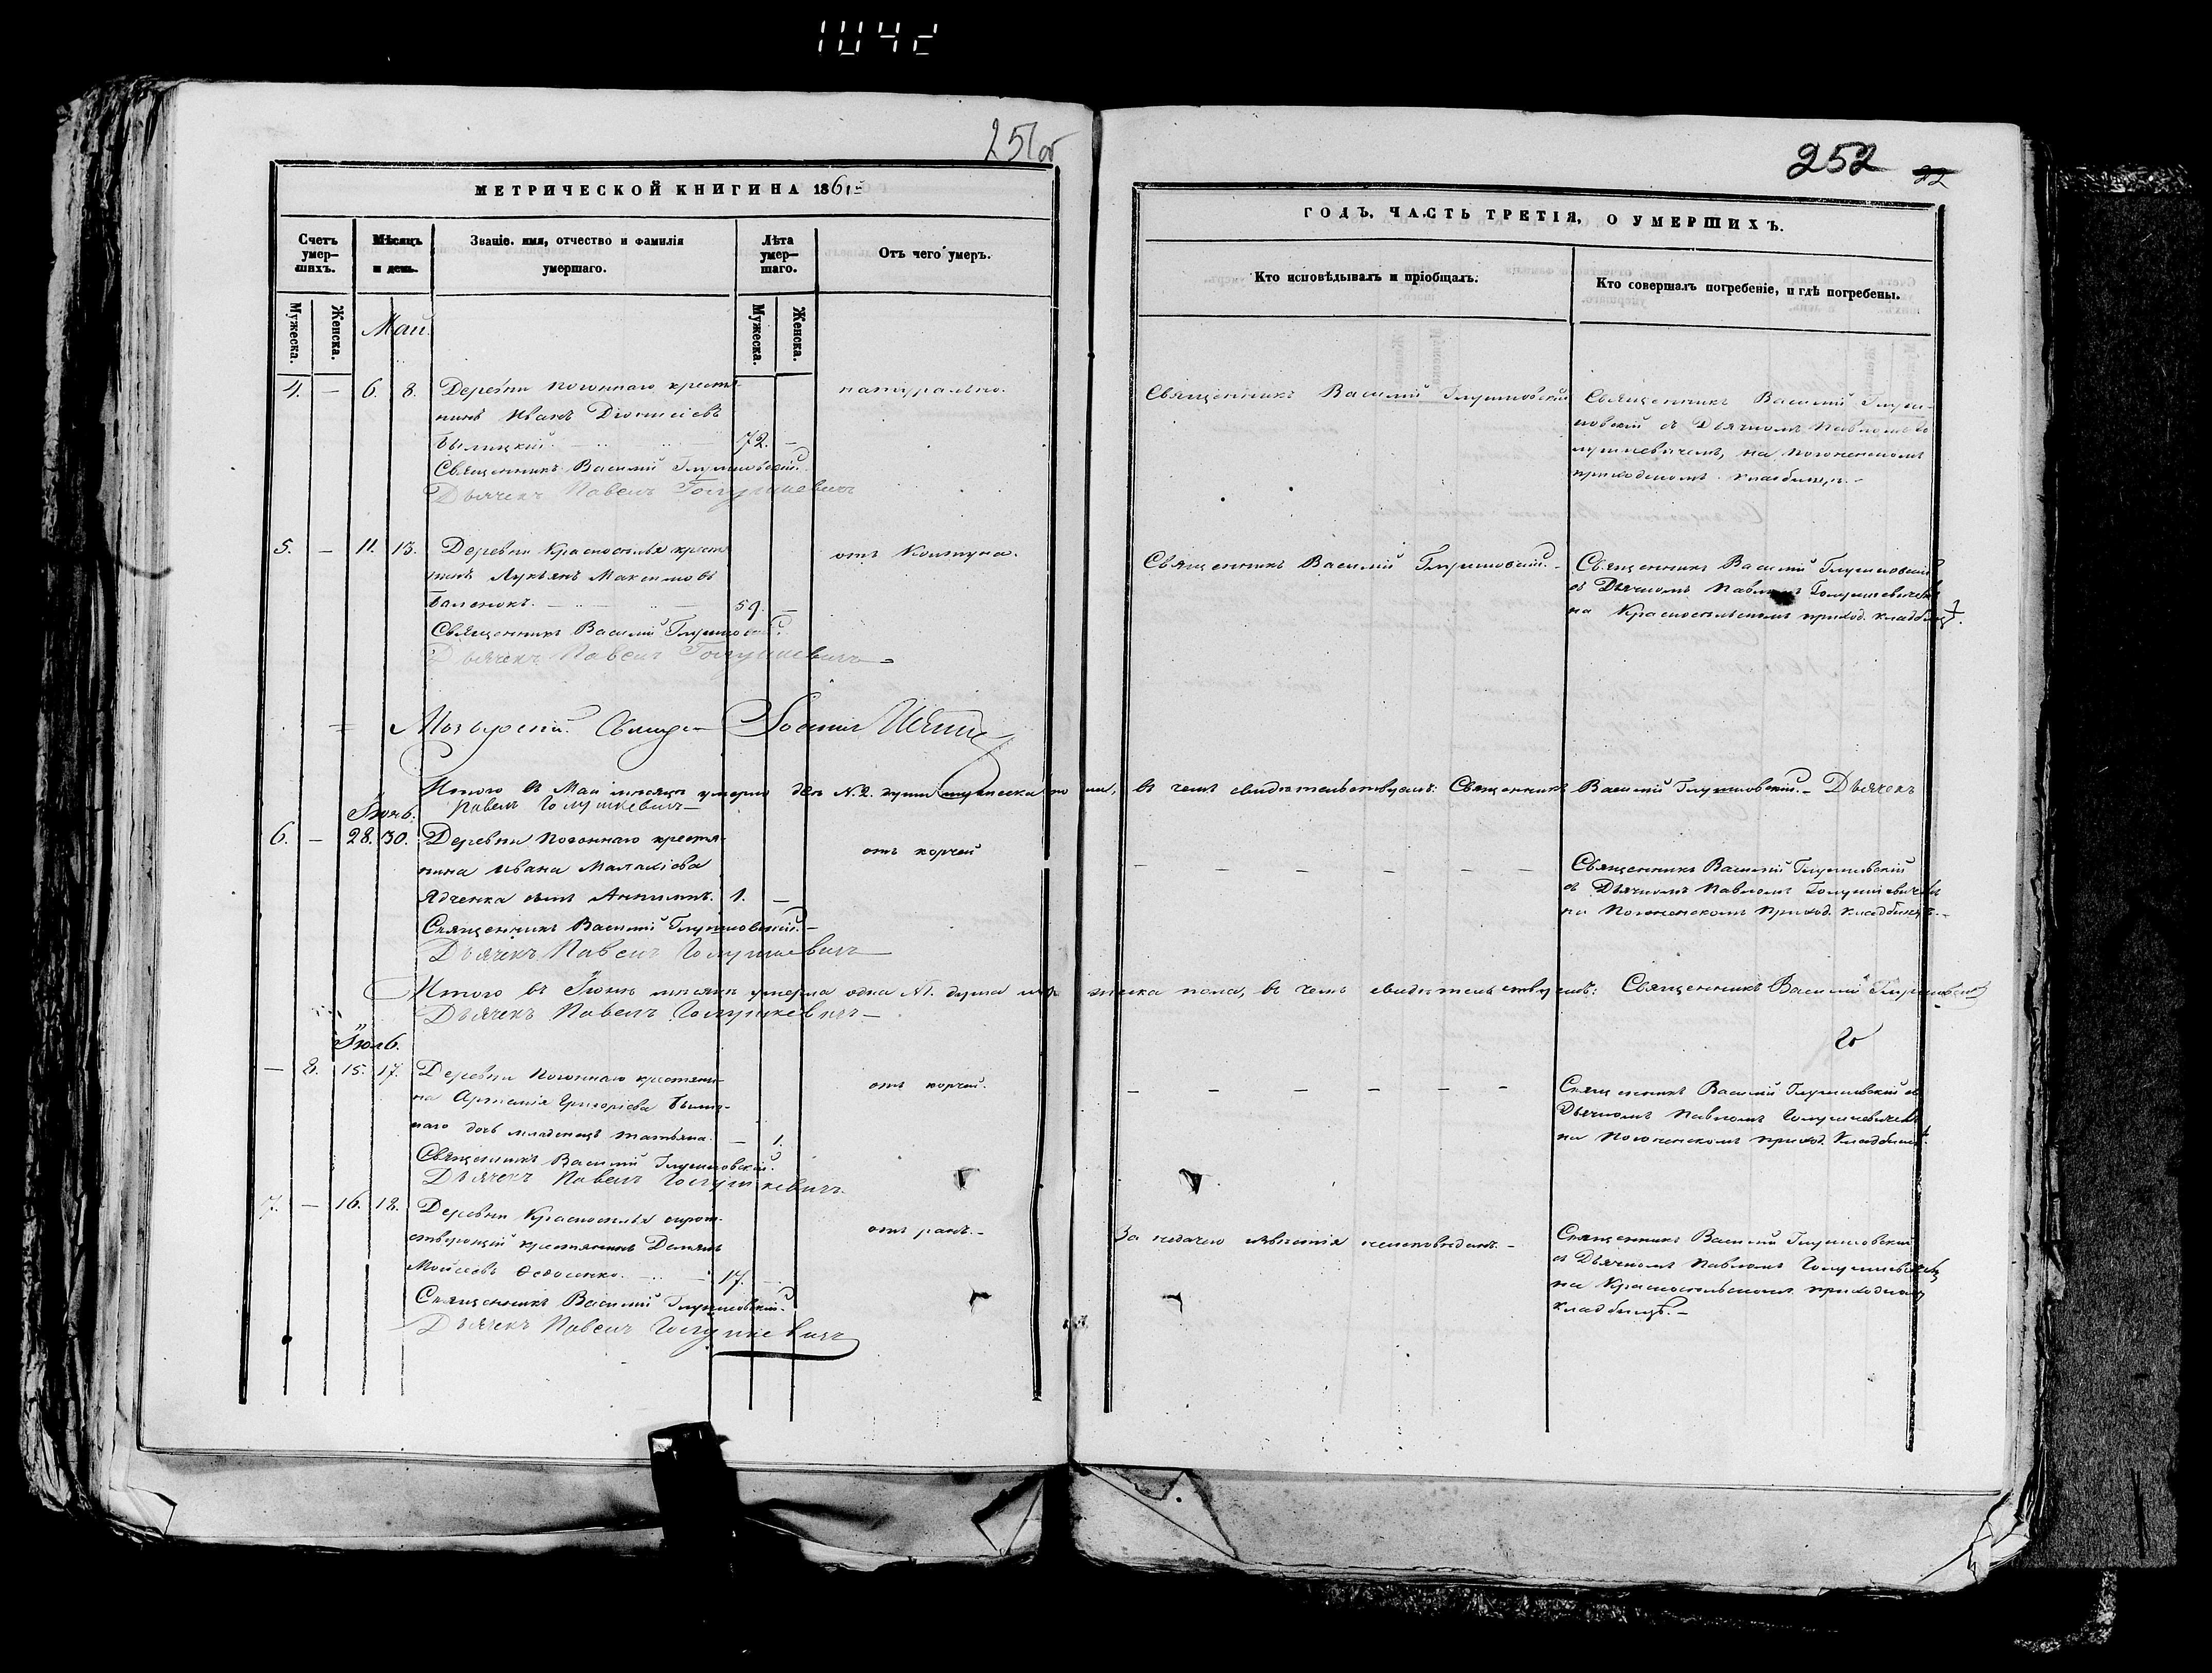 1042
251 об
МЕТРИЧЕСКОЙ КНИГИ НА 1861й
Счетъ умер-шихъ.
Мѣсяцъ и день.
Званіе. имя, отчество и фамилія умершаго.
Лѣта умер-шаго.
Отъ чего умеръ.
Мужеска.
Женска.
Мужеска.
Женска.
Май.
4. — 6. 8. Деревни Погоннаго крестья-
нинъ Иванъ Діонисіевъ
Былицкій. 72. —
натурально.
Священникъ Василій Глушковскій.
Дьячекъ Павелъ Голушкевичъ
5. — 11. 13. Деревни Красноселья крест
нинъ Лукьянъ Максимовъ
Баленокъ. 59. —
отъ Колтуна.
Священникъ Василій Глушковскій.
Дьячекъ Павелъ Голушкевичъ
Мозырскій
Итого въ Маи мѣсяцѣ умерло двѣ N. 2. души мужеска пола, въ чемъ свидѣтельствуемъ: Священникъ Василій Глушковскій. Дьячекъ
Павелъ Голушкевичъ
Іюнь.
6. — 28. 30. Деревни Погоннаго крестья-
нина Ивана Малахіева
Ядченка сынъ 1. —
отъ корчей
Священникъ Василій Глушковскій.
Дьячекъ Павелъ Голушкевичъ
Итого въ Іюнѣ мѣсяцѣ умерла одна N1. душа мужеска пола, въ чемъ свидѣтельствуемъ: Священникъ Василій Глушковскій
Дьячекъ Павелъ Голушкевичъ
Іюль.
— 8. 15. 17. Деревни Погоннаго крестяни-
на Артемія Григоріева Былиц-
каго дочь младенецъ Татьяна. — 1.
отъ корчей.
Священникъ Василій Глушковскій.
Дьячекъ Павелъ Голушкевичъ.
7. — 16. 18. Деревни Красноселья сирот-
ствующій крестянинъ Демьянъ
Мойсеевъ Федосенко. 17. —
отъ ранъ.
Священникъ Василій Глушковскій.
Дьячекъ Павелъ Голушкевичъ
252 22
ГОДЪ, ЧАСТЬ ТРЕТІЯ, О УМЕРШИХЪ.
Кто исповѣдывалъ и пріобщалъ.
Кто совершалъ погребеніе, и гдѣ погребены.
Священникъ Василій Глушковскій
Священникъ Василій Глуш-
ковскій съ Дьячкомъ Павломъ Го
лушкевичемъ, на Погоненскомъ
приходскомъ кладбищѣ.
Священникъ Василій Глушковскій.
Священникъ Василій Глушковскій
съ Дьячкомъ Павломъ Голушкевичемъ
на Красносельскомъ приход. кладбищѣ.
Священникъ Василій Глушковскій
съ Дьячкомъ Павломъ Голушкевичемъ
на Погоненскомъ приход. кладбищѣ.
Священникъ Василій Глушковскій съ
Дьячкомъ Павломъ Голушкевичемъ
на Погоненскомъ приход. кладбищѣ.
За недачею извѣстія неисповѣданъ.
Священникъ Василій Глушковскій
съ Дьячкомъ Павломъ Голушкевичемъ
на Красносельскомъ приходском
кладбищѣ.